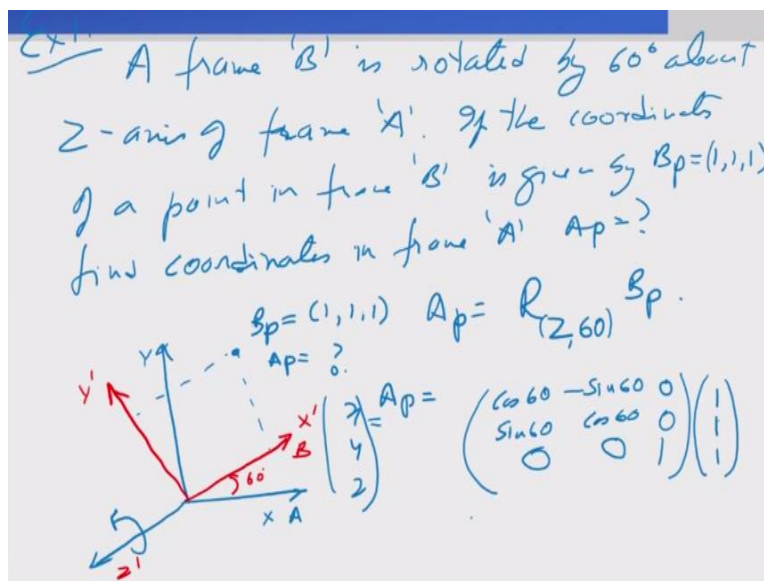 Ex1.
A frame 'B' is rotated by 60° about
Z-axis of frame 'A'. If the coordinates
of a point in frame 'B' is given by Bp=(1,1,1)
find coordinates in frame 'A' Ap=?
Bp= (1,1,1) Ap= R(Z,60) Bp.
Ap= ?
Y
Y'
X'
B
60°
X A
Z'
(x y z) = Ap =
(cos60 -sin60 0) (1)
(sin60 cos60 0) (1)
(0 0 1) (1)